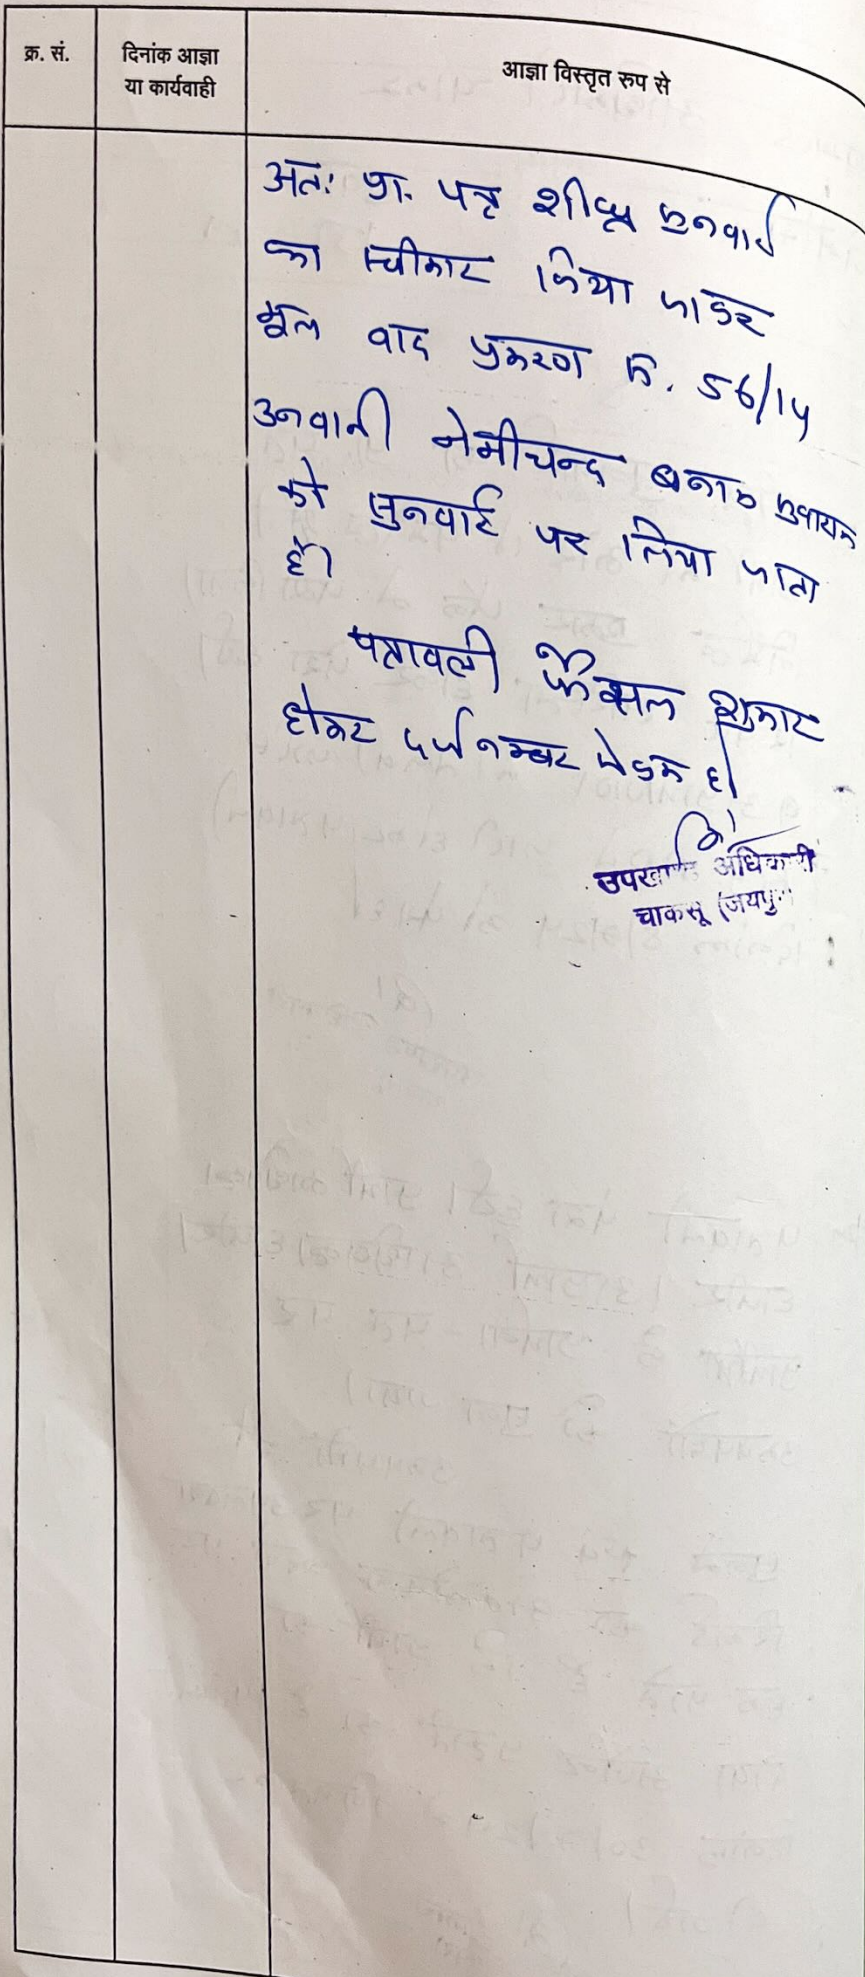 क्र. सं.
दिनांक आज्ञा
या कार्यवाही
आज्ञा विस्तृत रुप से
अतः प्रा. पत्र शीघ्र सुनवाई
का स्वीकार किया जाकर
मूल वाद प्रकरण क्र. 56/14
उनवानी नेमीचन्द बनाम
को सुनवाई पर लिया जाता
है।
पत्रावली फैसल शुमार
होकर दर्ज नम्बर से कम हो।
उपखण्ड अधिकारी
चाकसू (जयपुर